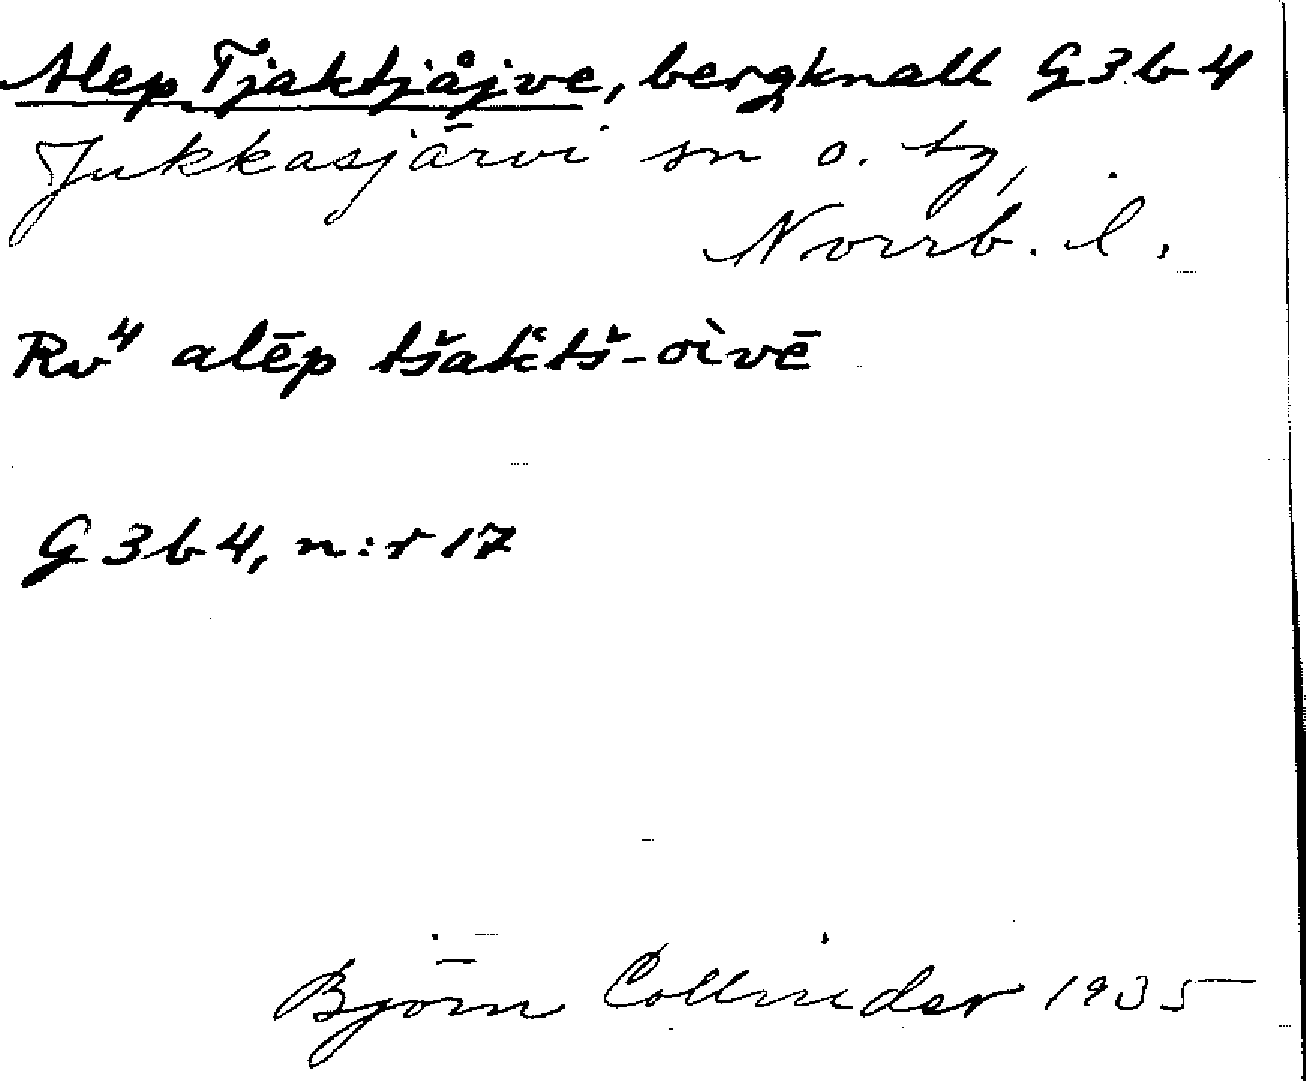 Alep Tjaktjåjve, bergknall G3b4
Jukkasjärvi sn o. tg,
Norrb. l.
Rv⁴ alēp tšaḱtš-oi̇̀vē
G3b4, n:r 17
Björn Collinder 1935